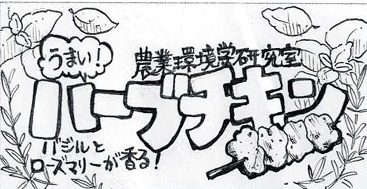 うまい!
農業環境学研究室
ハーブチキン
バジルと
ローズマリーが香る!